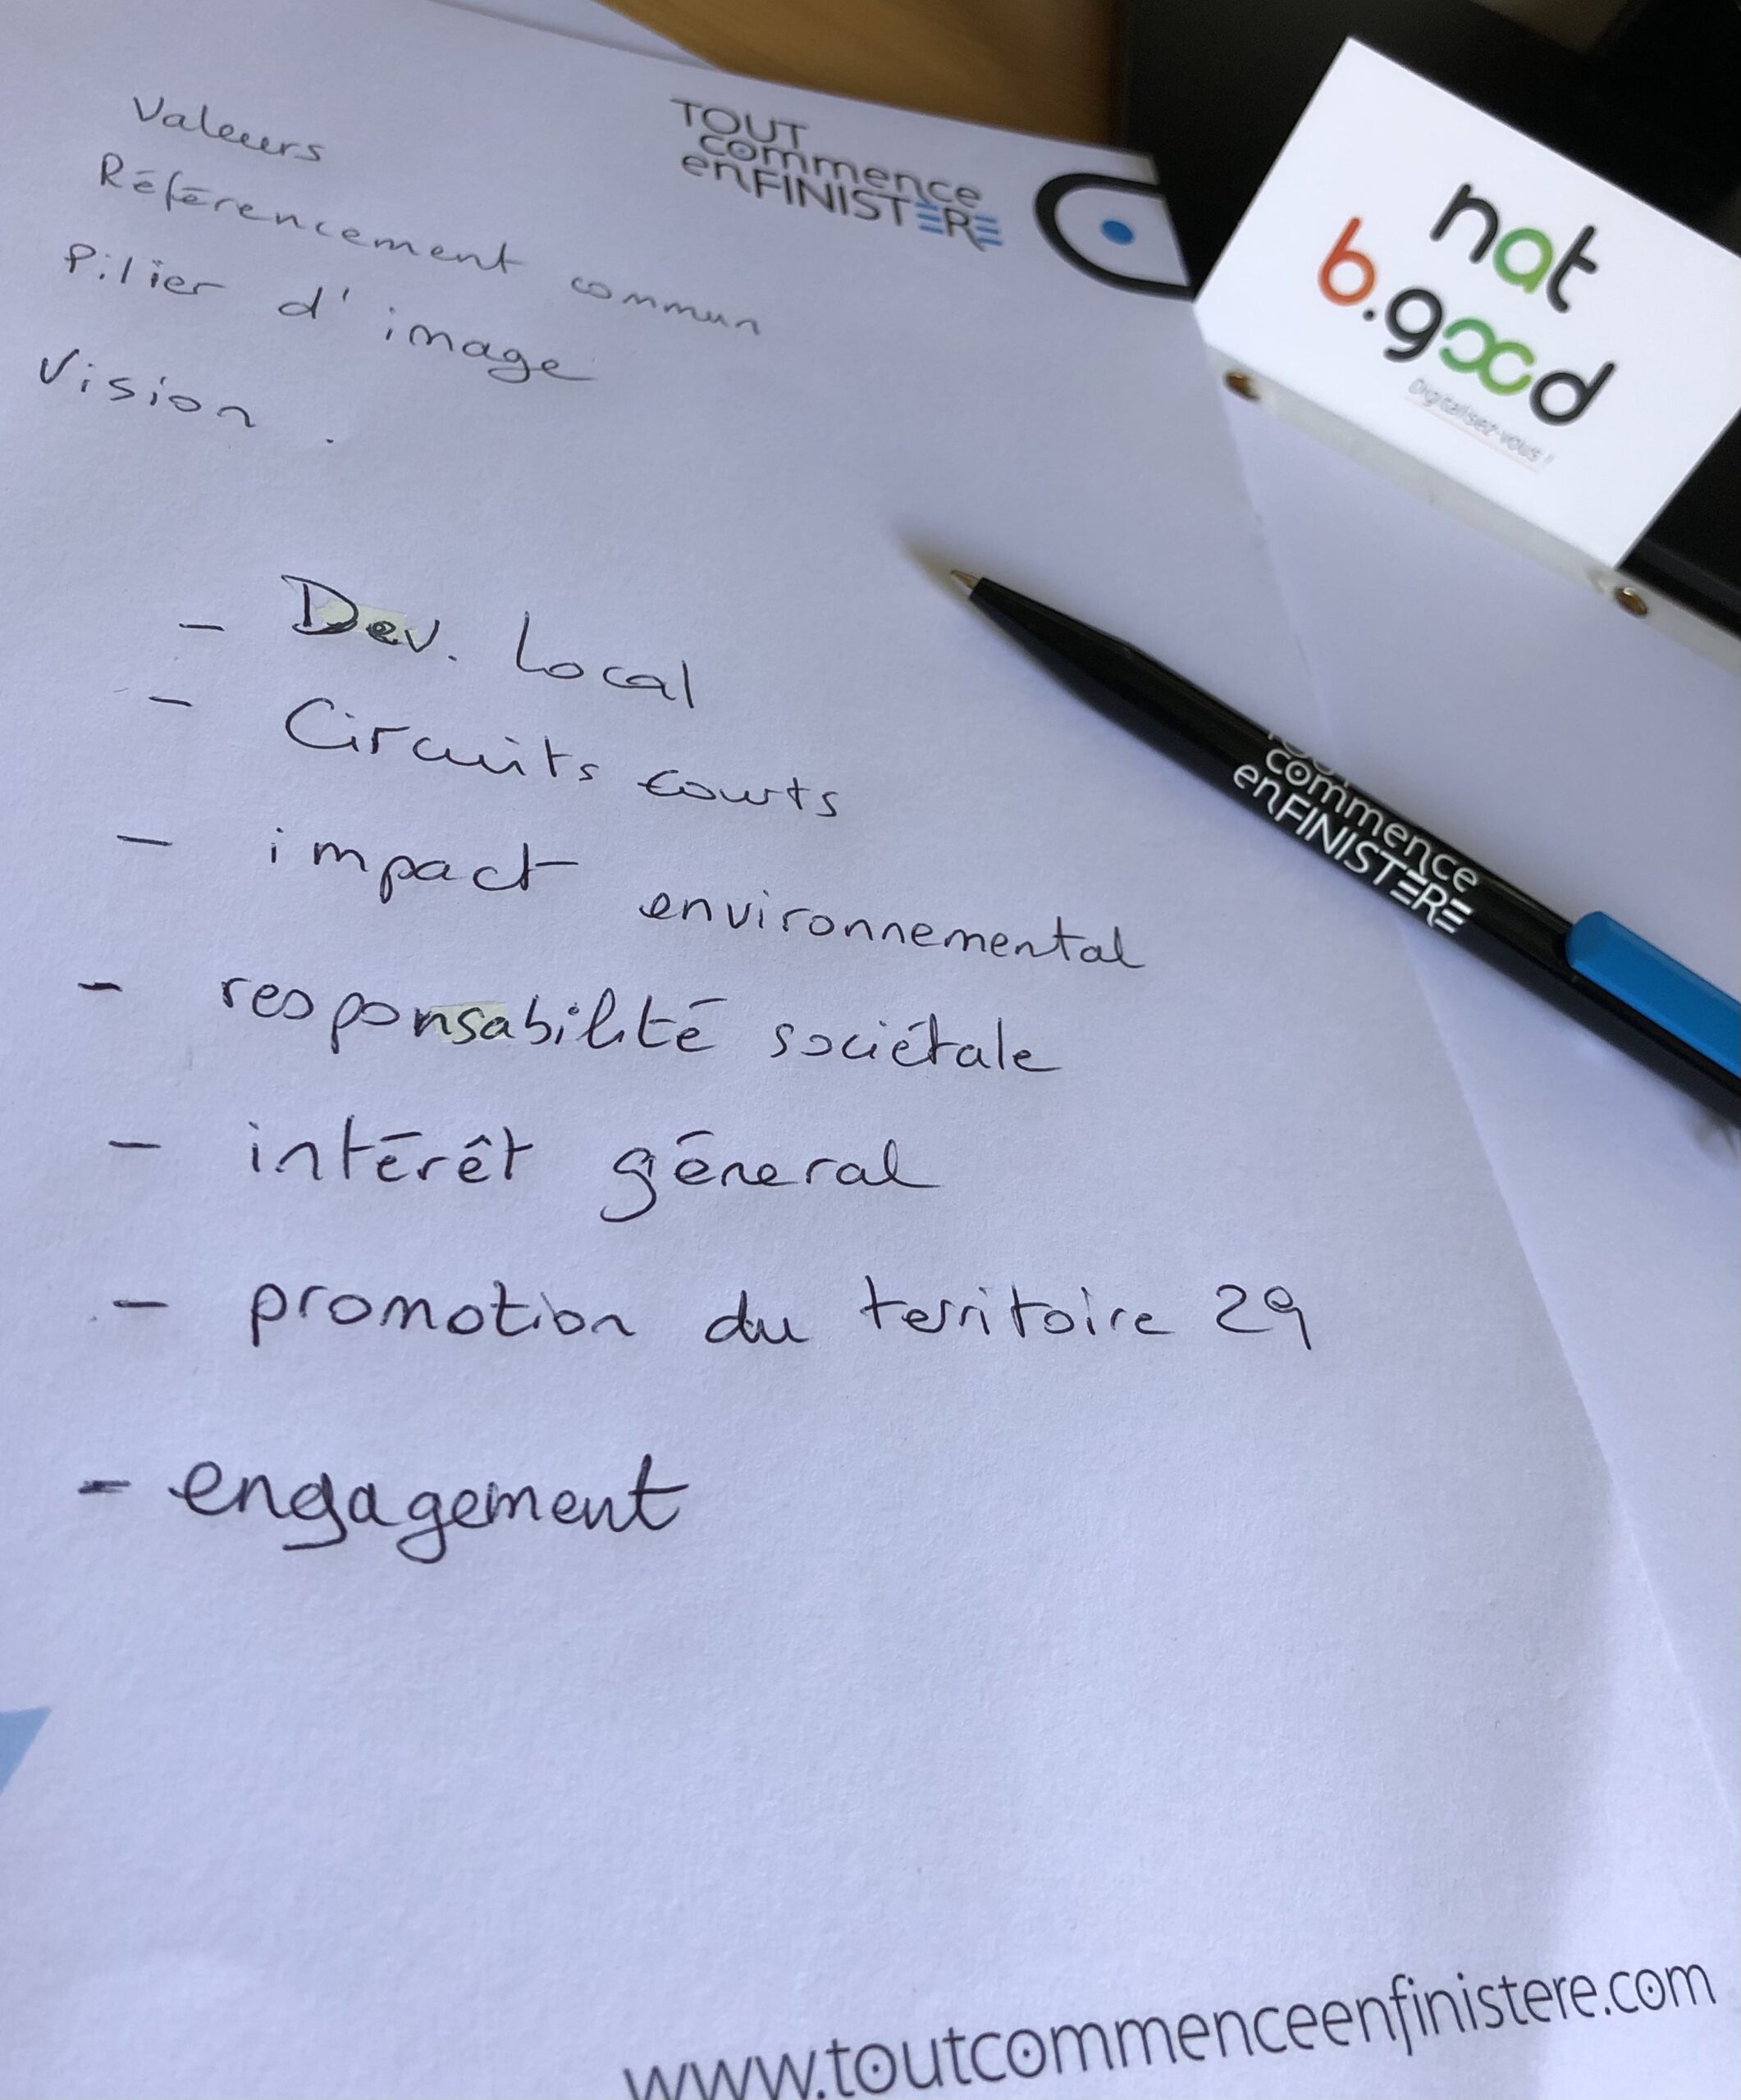 Valeurs
Référencement commun
Pilier d'image
Vision.
TOUT
commence
enFINISTÈRE
nat
b.good
Digitalisez-vous !
- Dev. Local
- Circuits courts
- impact environnemental
- responsabilité sociétale
- intérêt géneral
- promotion du territoire 29
- engagement
TOUT
commence
enFINISTÈRE
www.toutcommenceenfinistere.com